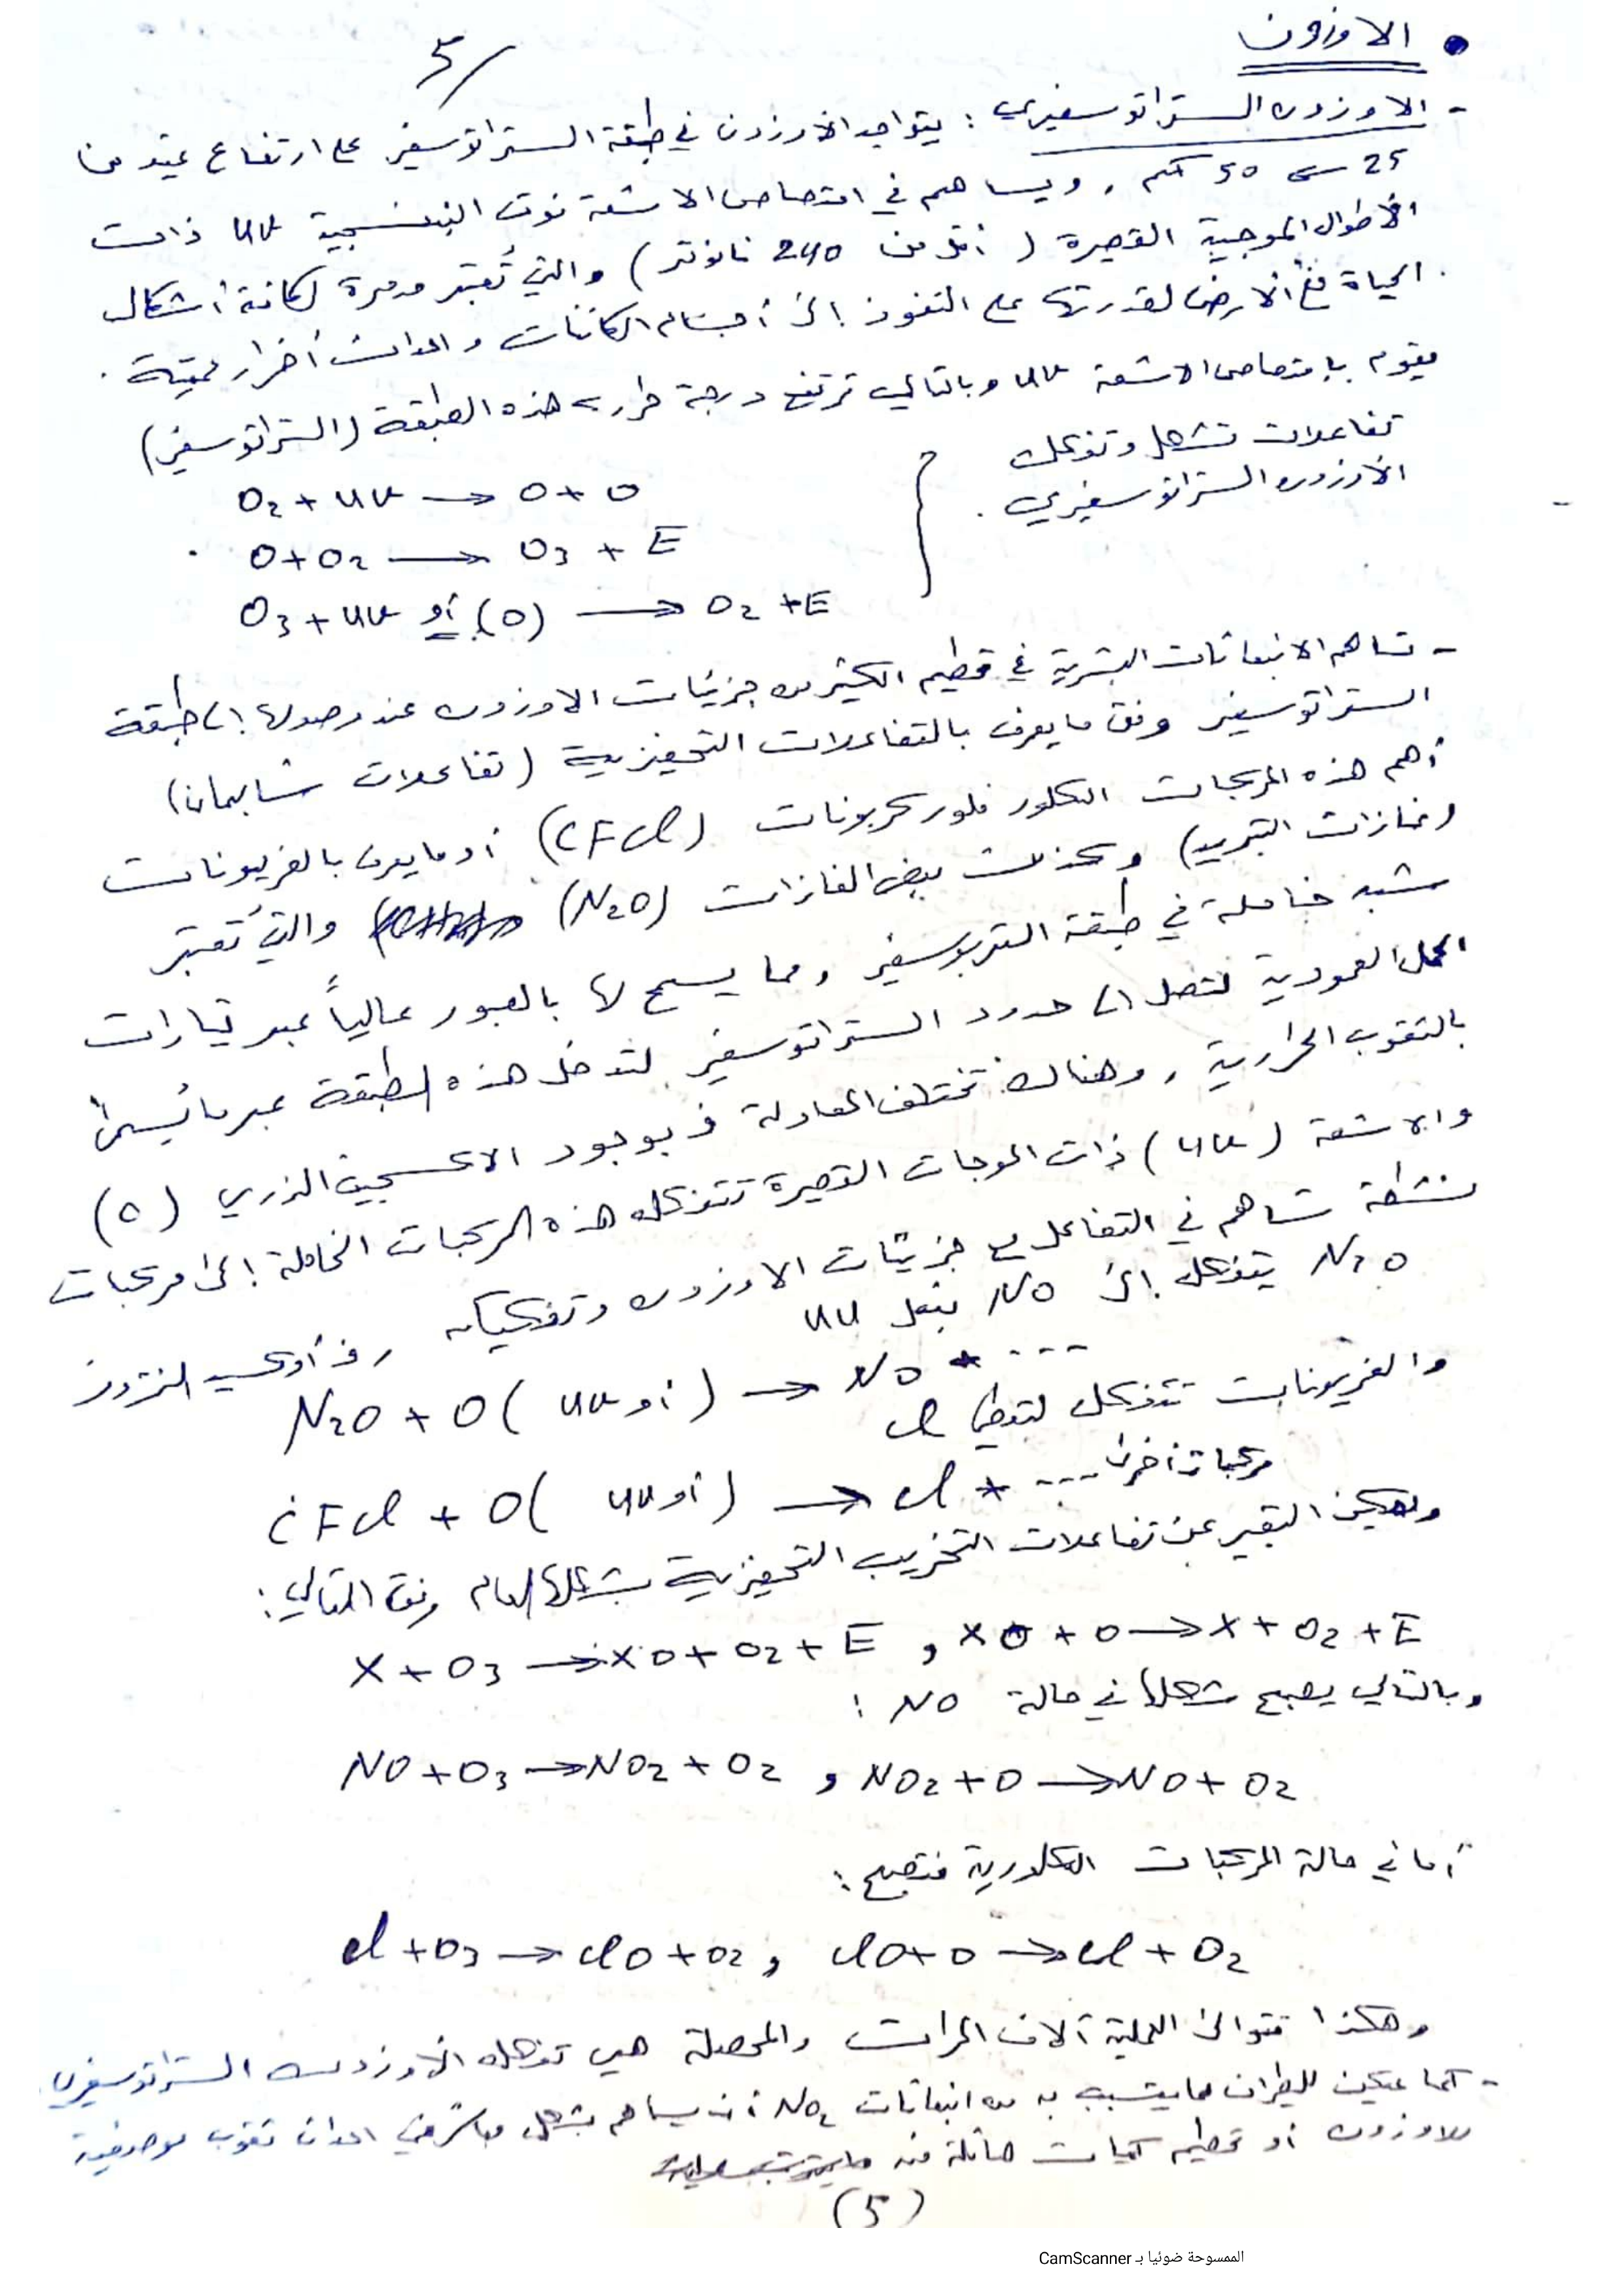 5/
• الاوزون
- الاوزون الستراتوسفيري : يتواجد الأوزون في طبقة الستراتوسفير على ارتفاع يمتد من
25 → 50 كم ، ويساهم في امتصاص الاشعة فوق البنفسجية UV ذات
الأطوال الموجية القصيرة ( أقل من 240 نانومتر ) والتي تُعتبر مدمرة لكافة أشكال
الحياة على الأرض لقدرتها على النفوذ إلى أجسام الكائنات واحداث أضرار مميتة .
يقوم بامتصاص الاشعة UV وبالتالي ترتفع درجة حرارة هذه الطبقة (الستراتوسفير)
تفاعلات تشكل وتفكك
الأوزون الستراتوسفيري .
O2 + UV → O + O
O + O2 → O3 + E
O3 + UV أو (O) → O2 + E
- تساهم الانبعاثات البشرية في تحطيم الكثير من جزيئات الاوزون عند وصولها إلى طبقة
الستراتوسفير وفق ما يعرف بالتفاعلات التحفيزية ( تفاعلات شابمان)
أهم هذه المركبات الكلور فلور كربونات (CFCl) أو ما يعرف بالفريونات
(غازات التبريد) وكذلك بعض الغازات (N2O) والتي تُعتبر
شبه خاملة في طبقة التربوسفير ، مما يسمح لها بالعبور عالياً عبر تيارات
الحمل العمودية لتصل إلى حدود الستراتوسفير لتدخل هذه الطبقة عبر ما يُسمى
بالثقوب الحرارية ، وهناك تختلف المعادلة فبوجود الاكسجين الذري (O)
والاشعة (UV) ذات الموجات القصيرة تتفكك هذه المركبات الخاملة إلى مركبات
نشطة تساهم في التفاعل مع جزيئات الاوزون وتفكيكه ، فأوكسيد النتروز
N2O يتفكك إلى NO بفعل UV
N2O + O ( أو UV ) → NO + ...
والفريونات تتفكك لتعطي Cl
CFCl + O ( أو UV ) → Cl + ... مركبات أخرى
ويمكن التعبير عن تفاعلات التخريب التحفيزية بشكلها العام وفق التالي :
X + O3 → XO + O2 + E , XO + O → X + O2 + E
وبالتالي يصبح شكلها في حالة NO :
NO + O3 → NO2 + O2 , NO2 + O → NO + O2
أما في حالة المركبات الكلورية فتصبح :
Cl + O3 → ClO + O2 , ClO + O → Cl + O2
وهكذا تتوالى العملية آلاف المرات والمحصلة هي تفكك الأوزون الستراتوسفيري
- كما يمكن للطيران بما يتسبب به من انبعاثات NOx أن يساهم بشكل مباشر في احداث ثقوب موضعية
للاوزون أو تحطيم كميات هائلة منه
(5)
الممسوحة ضوئيا بـ CamScanner